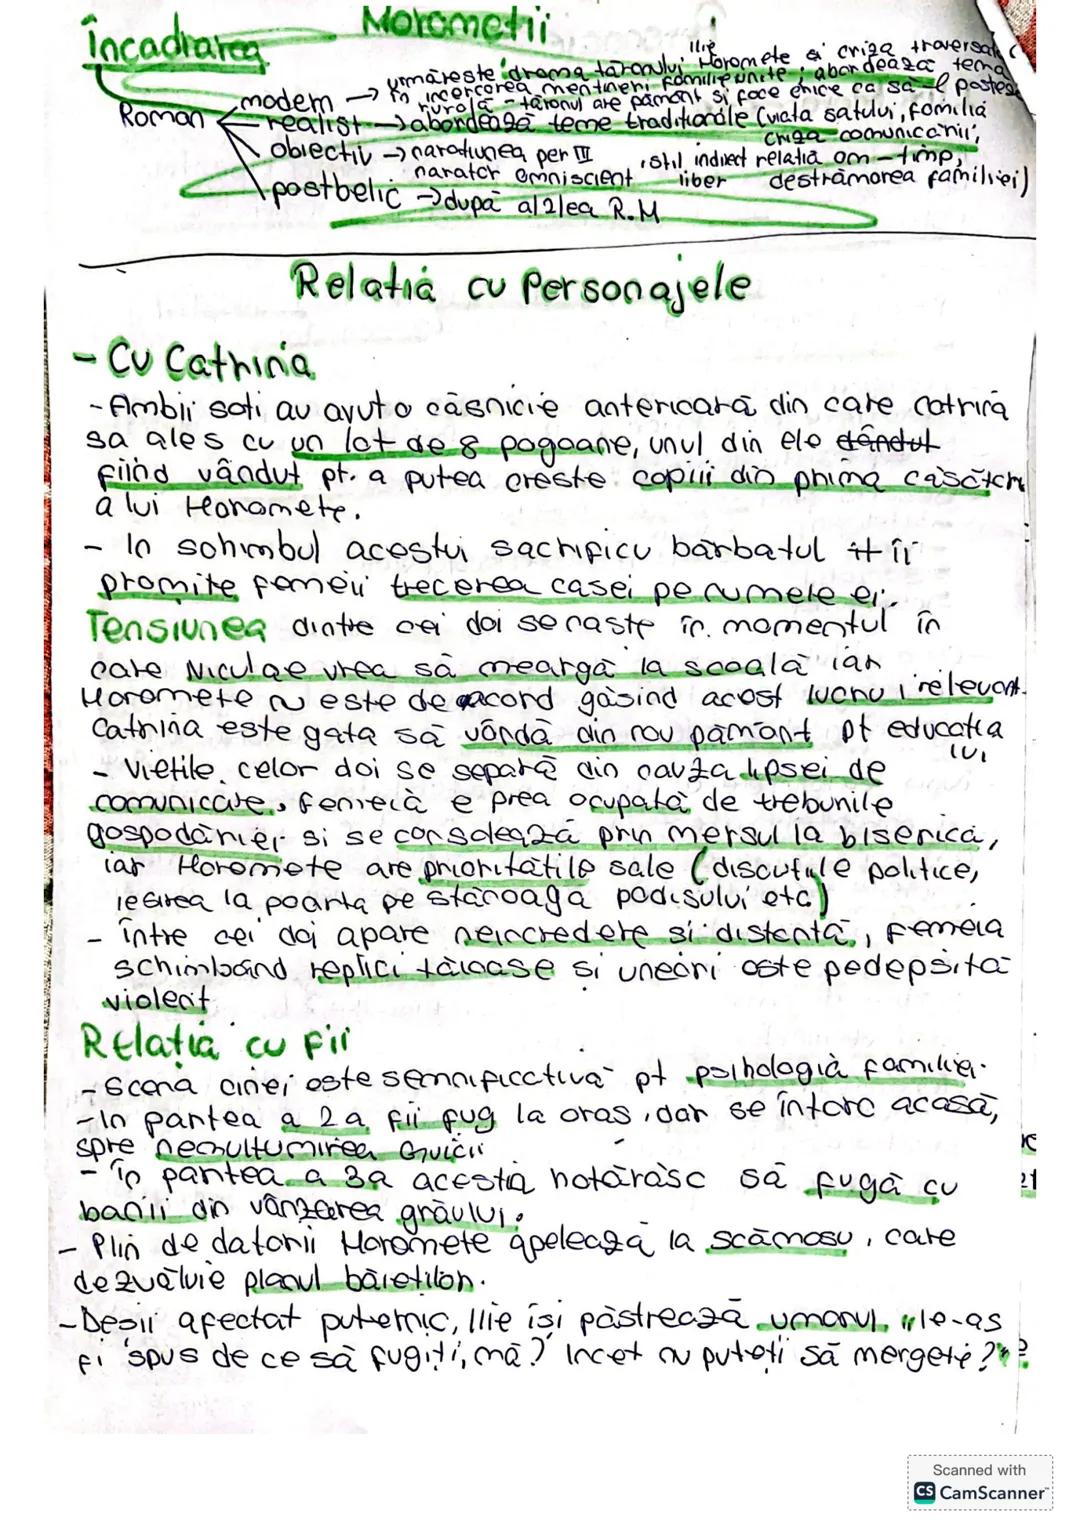 Încadrarea
Morometii
Roman
modern → urmărește drama țăranului Ilie Moromete și criza traversată
în incercarea mentineri familie unite, abordează tema
rurolă - țăronul are pământ si face orice ca să-l
realist → abordează teme traditionale (viata satului, familia
criza comunicării,
obiectiv → narațiunea per III
narator omniscient, stil indirect relatia om-timp,
liber destrămarea familiei)
postbelic → după al 2lea R.M
Relatiă cu Personajele
- Cu Catrina
- Ambii soti au avut o căsnicie anterioară din care Catrina
sa ales cu un lot de 8 pogoane, unul din ele
fiind vândut pt. a putea creste copiii din prima căsători
a lui Moromete.
- In schimbul acestui sacrificu bărbatul îi
promite femeii trecerea casei pe numele ei.
Tensiunea dintre cei doi se naste în momentul în
care Niculae vrea să meargă la scoală iar
Moromete nu este de acord găsind acest lucru irelevant.
Catrina este gata să vândă din nou pământ pt educatia
lui
- Vietile celor doi se separă din cauza lipsei de
comunicare, femeia e prea ocupată de treburile
gospodăriei si se consolează prin mersul la biserică,
iar Moromete are prioritătile sale (discutiile politice,
iesirea la poarta pe stănoaga podisului etc)
- între cei doi apare neincredere si distantă, femeia
schimband replici tăioase si uneori este pedepsită
violent
Relația cu fii
- Scena cinei este semnificativă pt psihologia familiei.
- In partea a 2a fii fug la oras, dar se întorc acasă,
spre nemultumirea Guicii
- în partea a 3a acestia hotărăsc să fugă cu
banii din vânzarea grâului.
- Plin de datorii Moromete apelează la scămosu, care
dezvăluie planul băietilor.
- Desii afectat puternic, Ilie îsi păstrează umorul "le-as
fi spus de ce să fugiți, mă? Incet nu puteți să mergeti?"
Scanned with
CS CamScanner